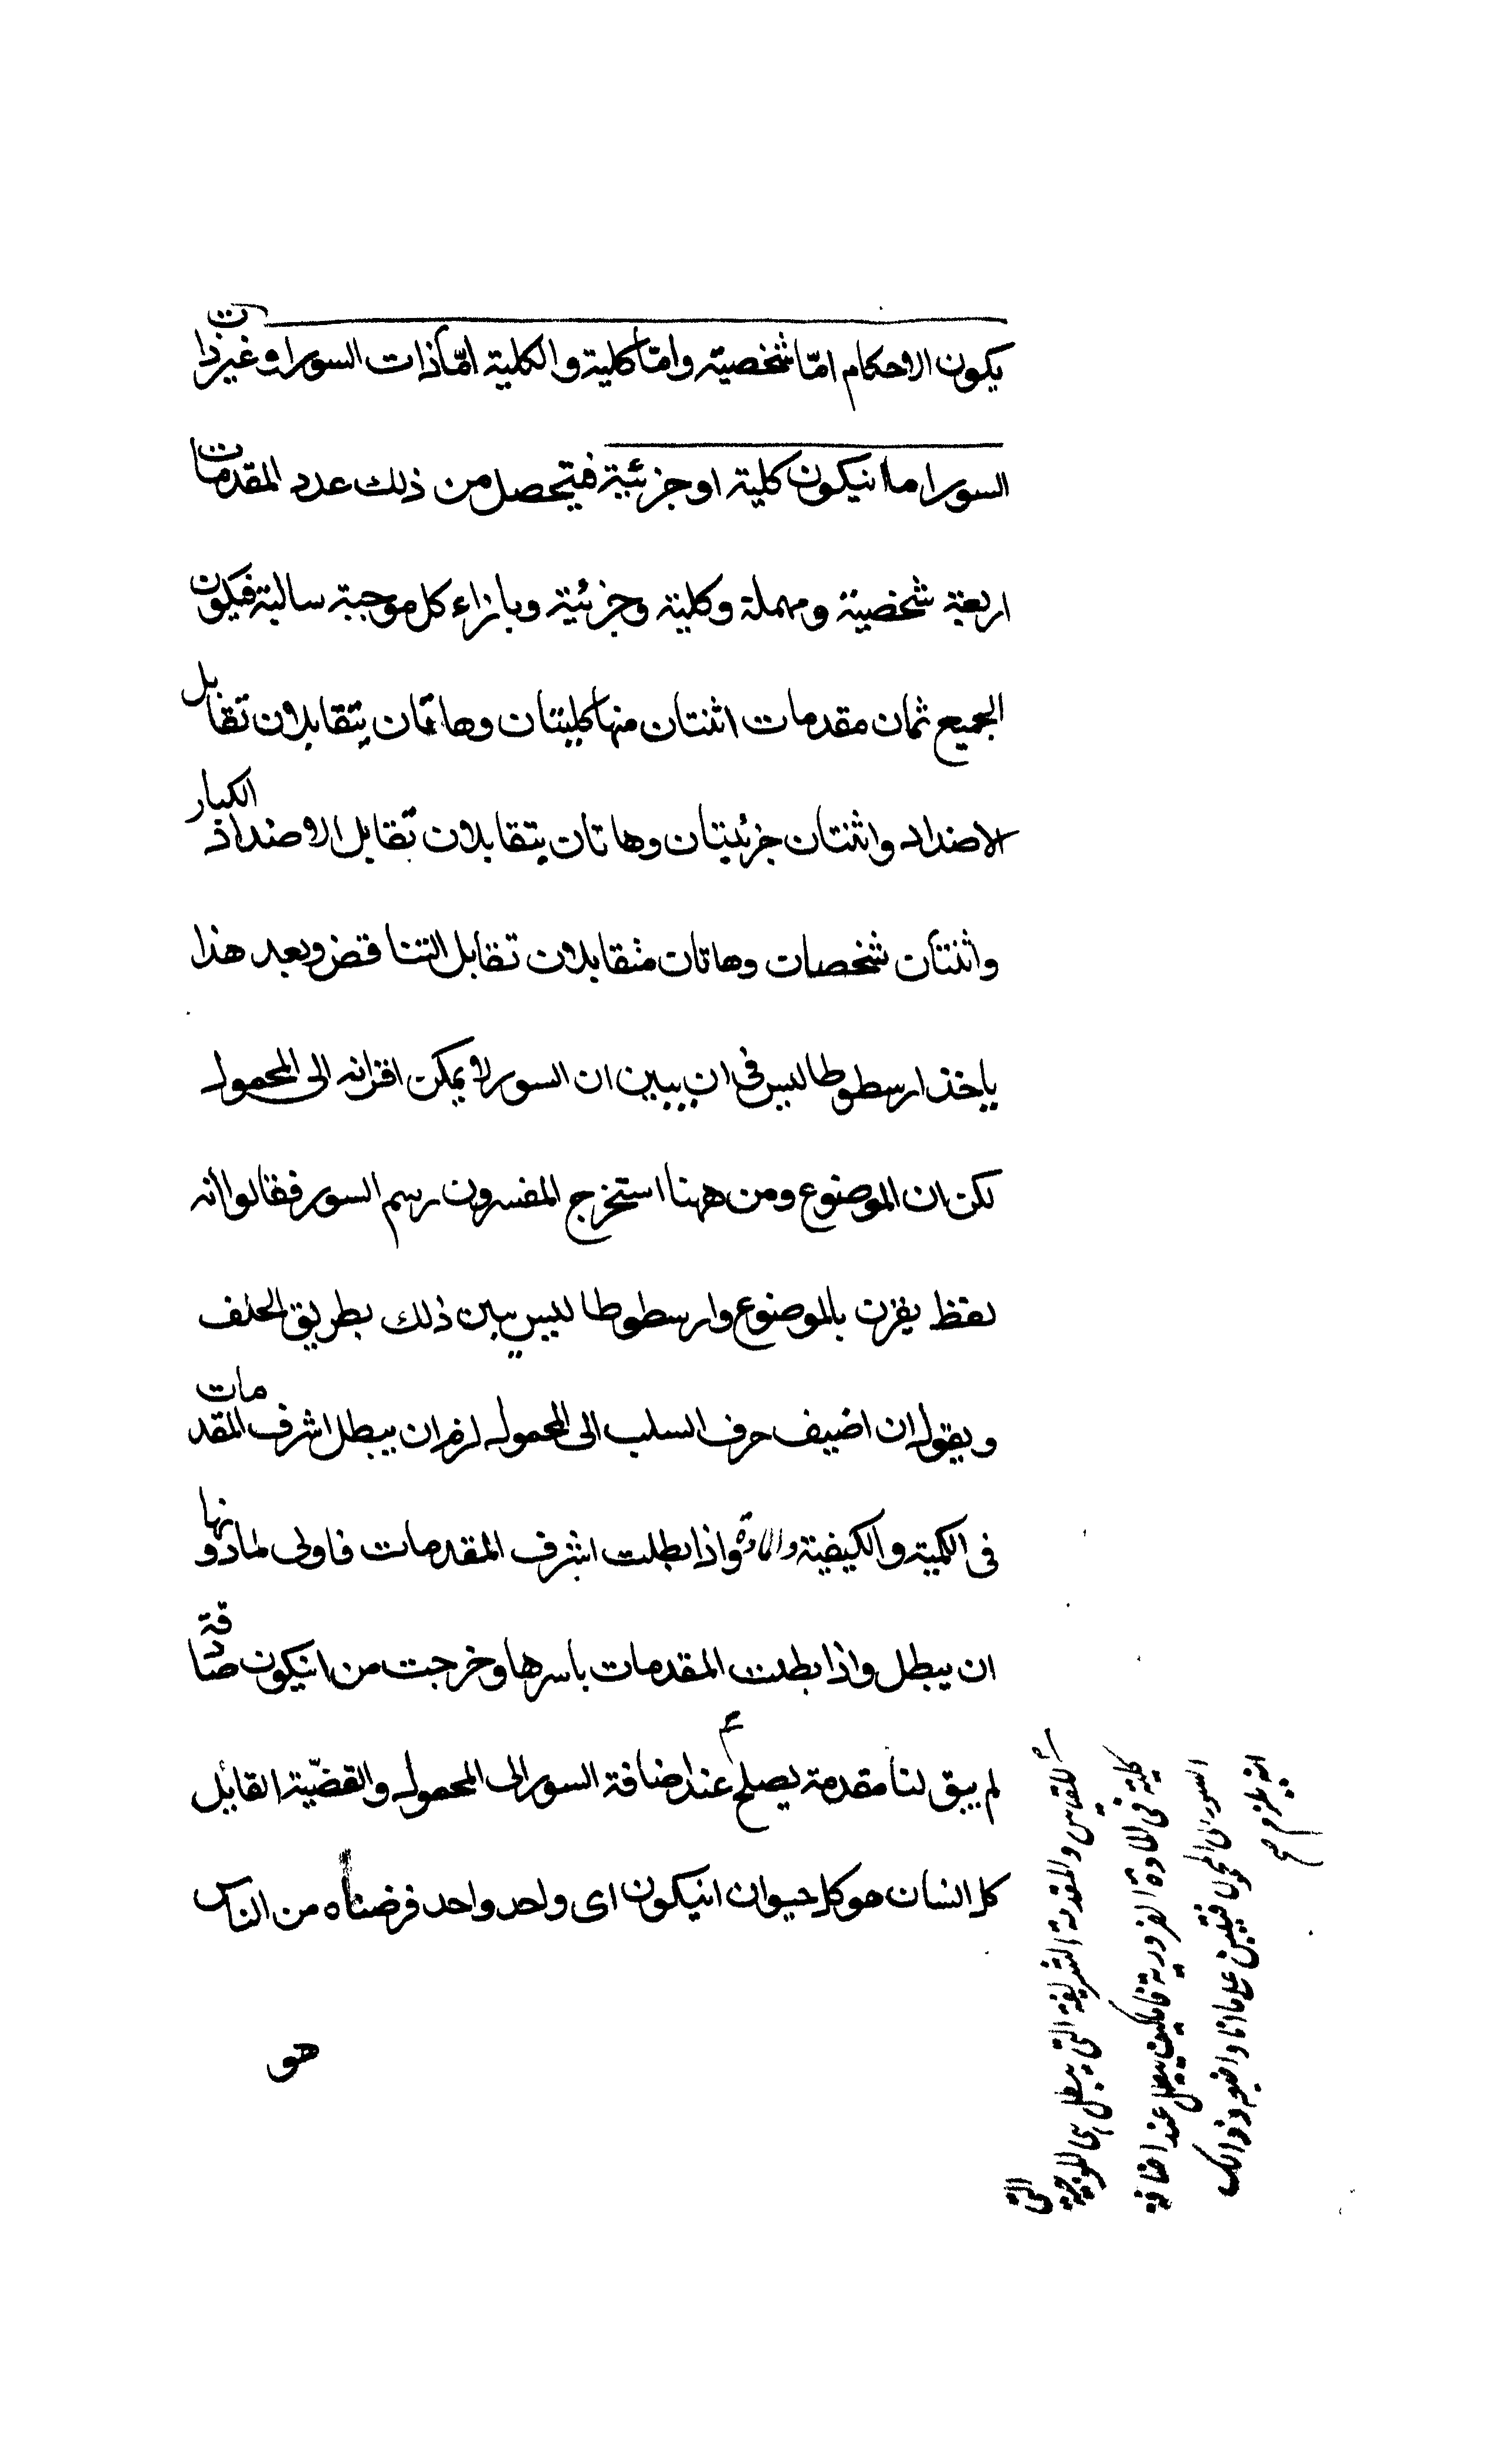 يكون الاحكام امّا شخصية وامّا كلية والكلية امّا ذات السور او غير ذات
السور اما انيكون كلية او جزئية فيتحصل من ذلك عدد المقدمات
اربعة شخصية ومهملة وكلية وجزئية وبازاء كل موجبة سالبة فيكون
الجميع ثمان مقدمات اثنتان منها كليتان وهاتان يتقابلان تقابل
الاضداد واثنتان جزئيتان وهاتان يتقابلان تقابل الاضداد الكبار
واثنتان شخصات وهاتان متقابلان تقابل التناقض وبعد هذا
ياخذ ارسطوطاليس في ان يبين ان السور لا يمكن اقرانه الى المحمول
لكن ان الموضوع ومن ههنا استخرج المفسرون رسم السور فقالوا انه
لفظ يقرن بالموضوع وارسطوطاليس يبين ذلك بطريق الخلف
ويقول ان اضيف حرف السلب الى المحمول لزم ان يبطل اشرف المقدمات
في الكمية والكيفية والمادة واذا بطلت اشرف المقدمات فاولى لما دونها
ان يبطل واذا بطلت المقدمات باسرها وخرجت من انيكون صادقة
لم يبق لنا مقدمة يصلح عند اضافة السور الى المحمول والقضيّة القائل
كل انسان هو كل حيوان انيكون اى واحد واحد فرضناه من الناس
هو
للقياس والمقدمة الشريفة التي يبطل هي الموجبة التي
كلية في المادة الضرورية فاما كيف يبطل عند اضافة
السور الى المحمول فيتبين على ما انا واضعه وذلك
انه يلزم صح